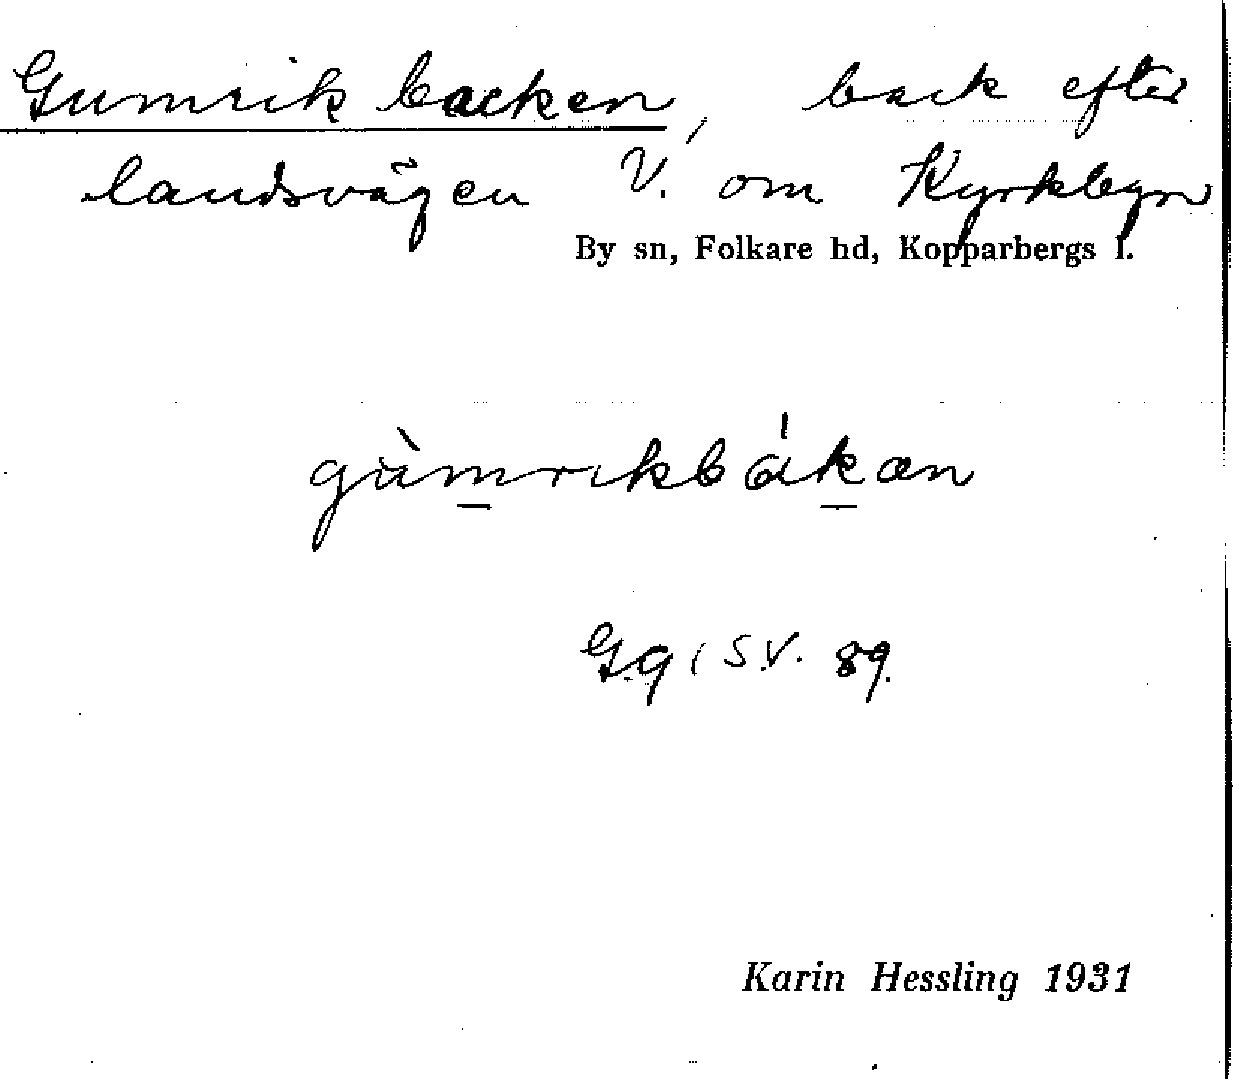 Gumrikbacken, back efter
landsvägen V. om Kyrkbyn
By sn, Folkare hd, Kopparbergs l.
gùmrikbákan
G.g. i S.V. 89.
Karin Hessling 1931